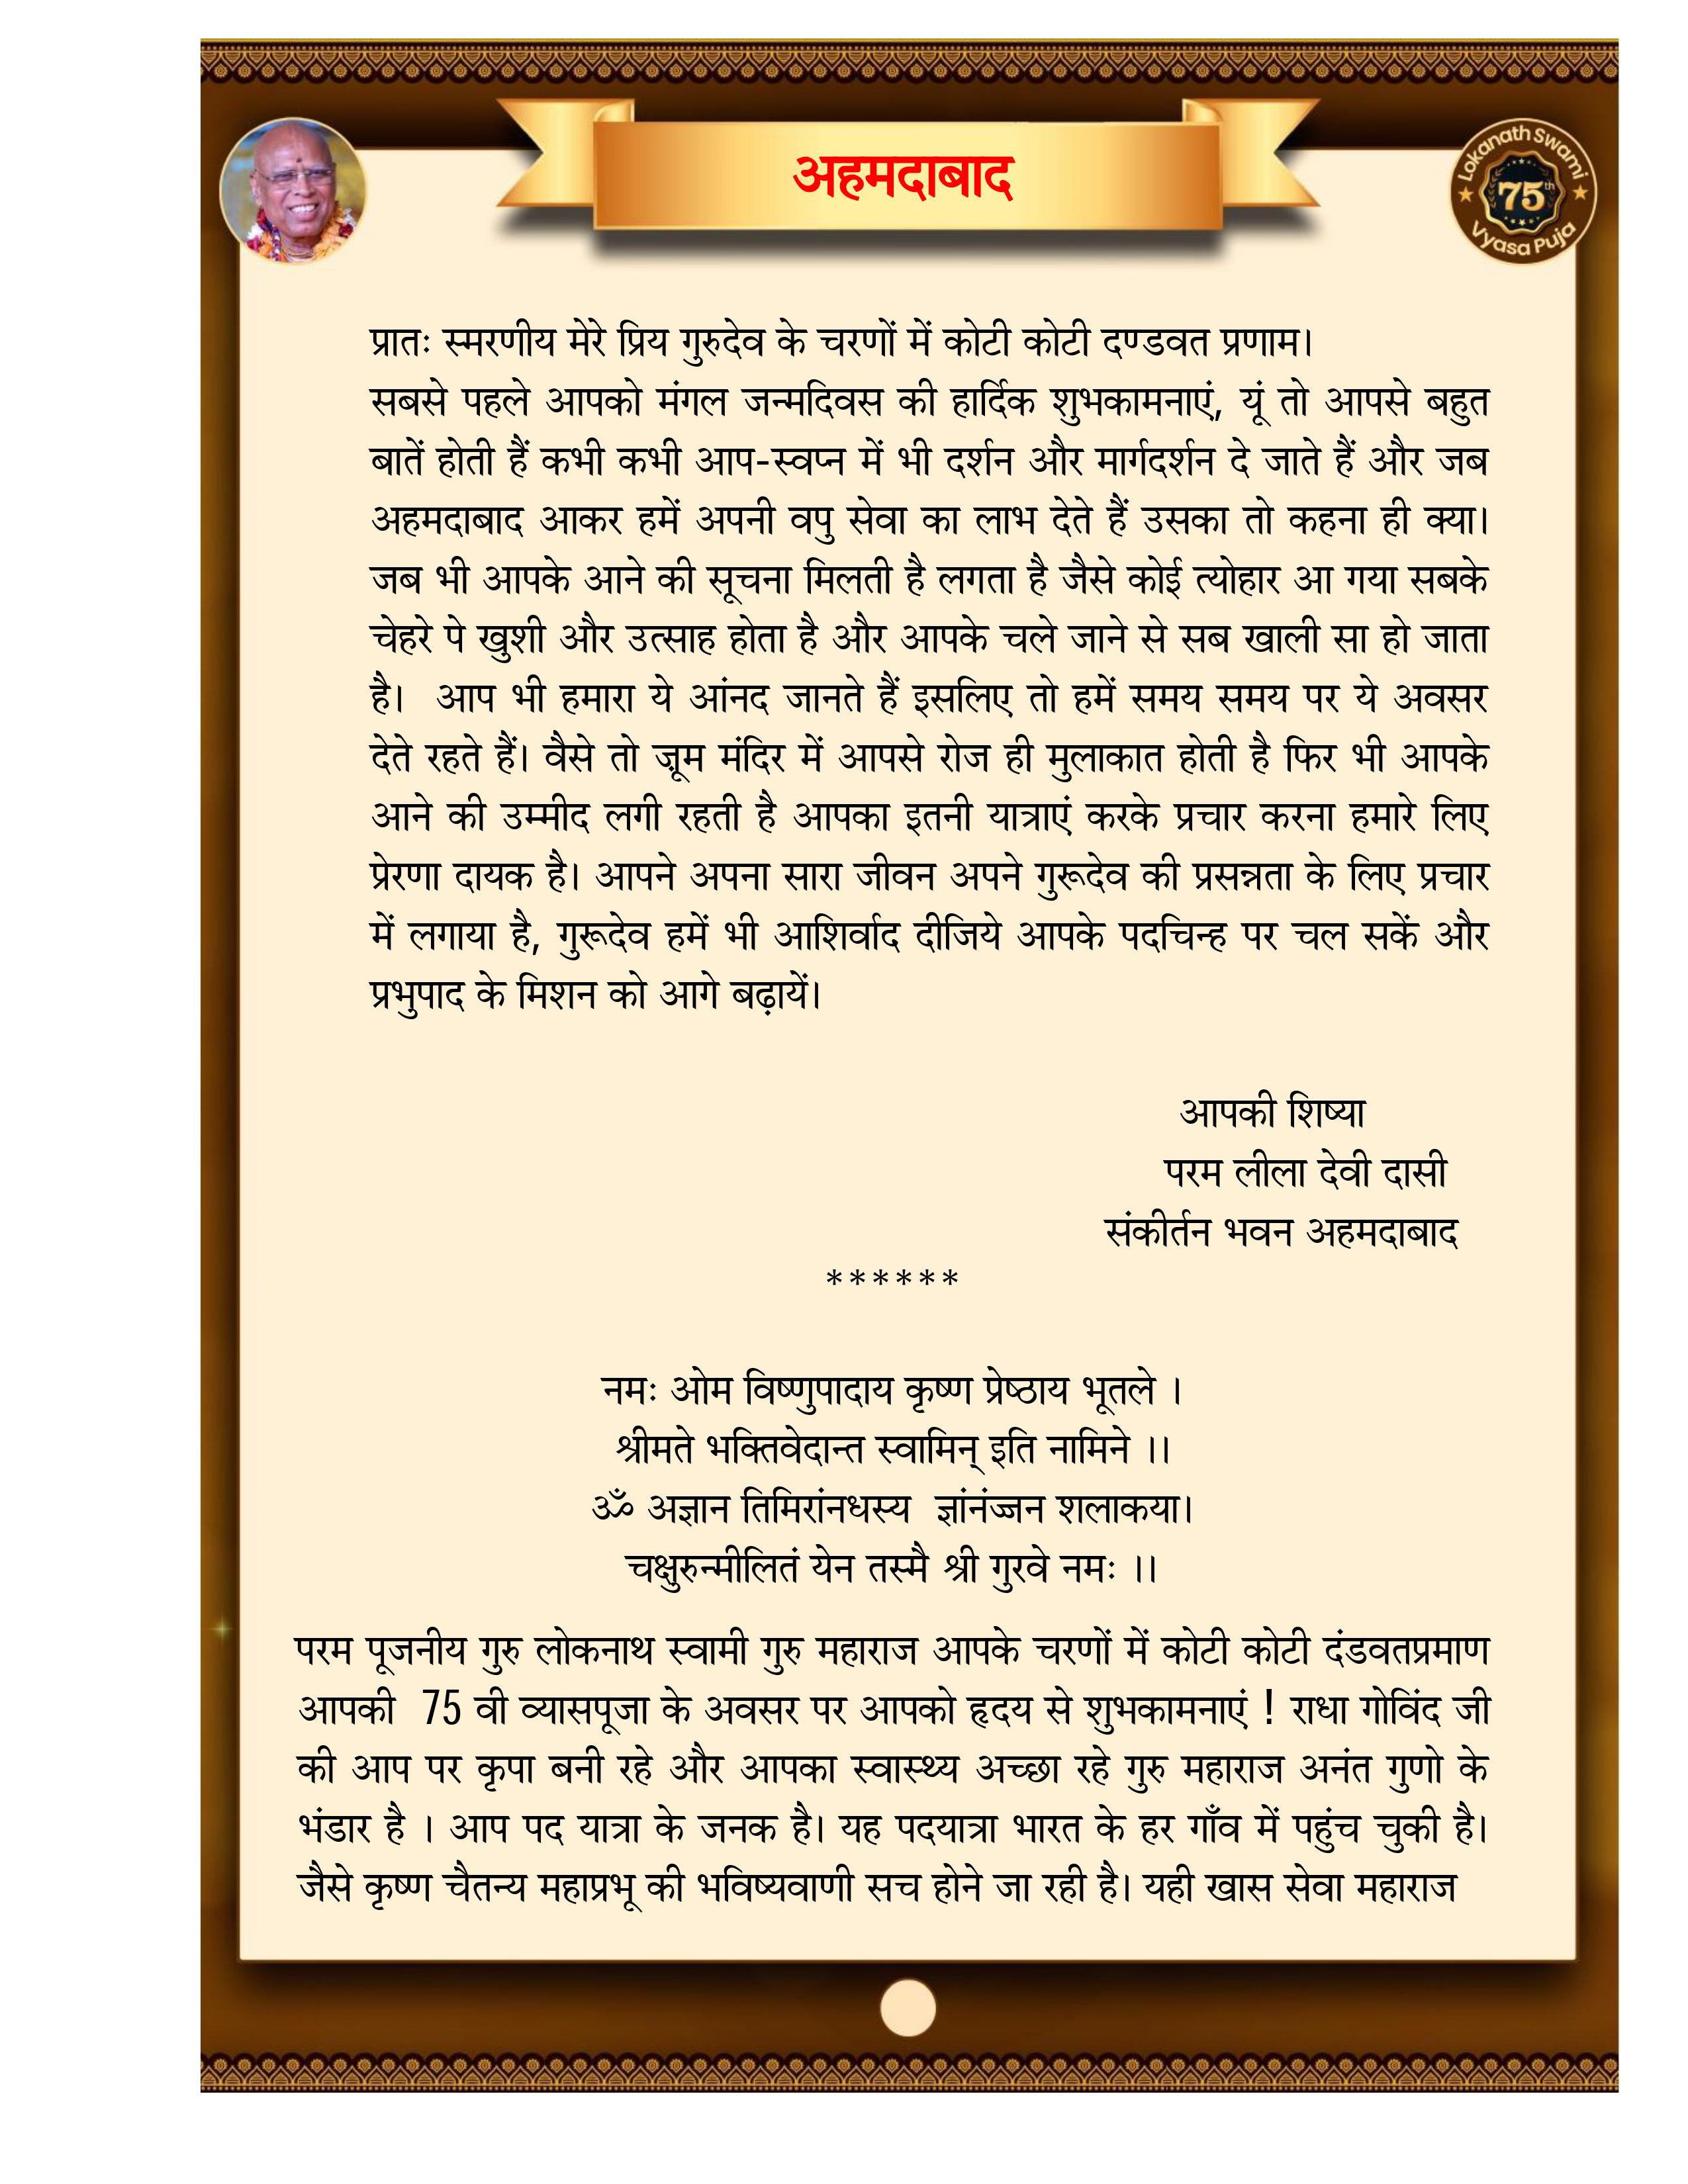 अहमदाबाद
Lokanath Swami
75th
Vyasa Puja
प्रातः स्मरणीय मेरे प्रिय गुरुदेव के चरणों में कोटी कोटी दण्डवत प्रणाम।
सबसे पहले आपको मंगल जन्मदिवस की हार्दिक शुभकामनाएं, यूं तो आपसे बहुत
बातें होती हैं कभी कभी आप-स्वप्न में भी दर्शन और मार्गदर्शन दे जाते हैं और जब
अहमदाबाद आकर हमें अपनी वपु सेवा का लाभ देते हैं उसका तो कहना ही क्या।
जब भी आपके आने की सूचना मिलती है लगता है जैसे कोई त्योहार आ गया सबके
चेहरे पे खुशी और उत्साह होता है और आपके चले जाने से सब खाली सा हो जाता
है।  आप भी हमारा ये आंनद जानते हैं इसलिए तो हमें समय समय पर ये अवसर
देते रहते हैं। वैसे तो ज़ूम मंदिर में आपसे रोज ही मुलाकात होती है फिर भी आपके
आने की उम्मीद लगी रहती है आपका इतनी यात्राएं करके प्रचार करना हमारे लिए
प्रेरणा दायक है। आपने अपना सारा जीवन अपने गुरूदेव की प्रसन्नता के लिए प्रचार
में लगाया है, गुरूदेव हमें भी आशिर्वाद दीजिये आपके पदचिन्ह पर चल सकें और
प्रभुपाद के मिशन को आगे बढ़ायें।
आपकी शिष्या
परम लीला देवी दासी
संकीर्तन भवन अहमदाबाद
******
नमः ओम विष्णुपादाय कृष्ण प्रेष्ठाय भूतले ।
श्रीमते भक्तिवेदान्त स्वामिन् इति नामिने ।।
ॐ अज्ञान तिमिरांनधस्य  ज्ञांनंज्जन शलाकया।
चक्षुरुन्मीलितं येन तस्मै श्री गुरवे नमः ।।
परम पूजनीय गुरु लोकनाथ स्वामी गुरु महाराज आपके चरणों में कोटी कोटी दंडवतप्रमाण
आपकी  75 वी व्यासपूजा के अवसर पर आपको हृदय से शुभकामनाएं ! राधा गोविंद जी
की आप पर कृपा बनी रहे और आपका स्वास्थ्य अच्छा रहे गुरु महाराज अनंत गुणो के
भंडार है । आप पद यात्रा के जनक है। यह पदयात्रा भारत के हर गाँव में पहुंच चुकी है।
जैसे कृष्ण चैतन्य महाप्रभू की भविष्यवाणी सच होने जा रही है। यही खास सेवा महाराज